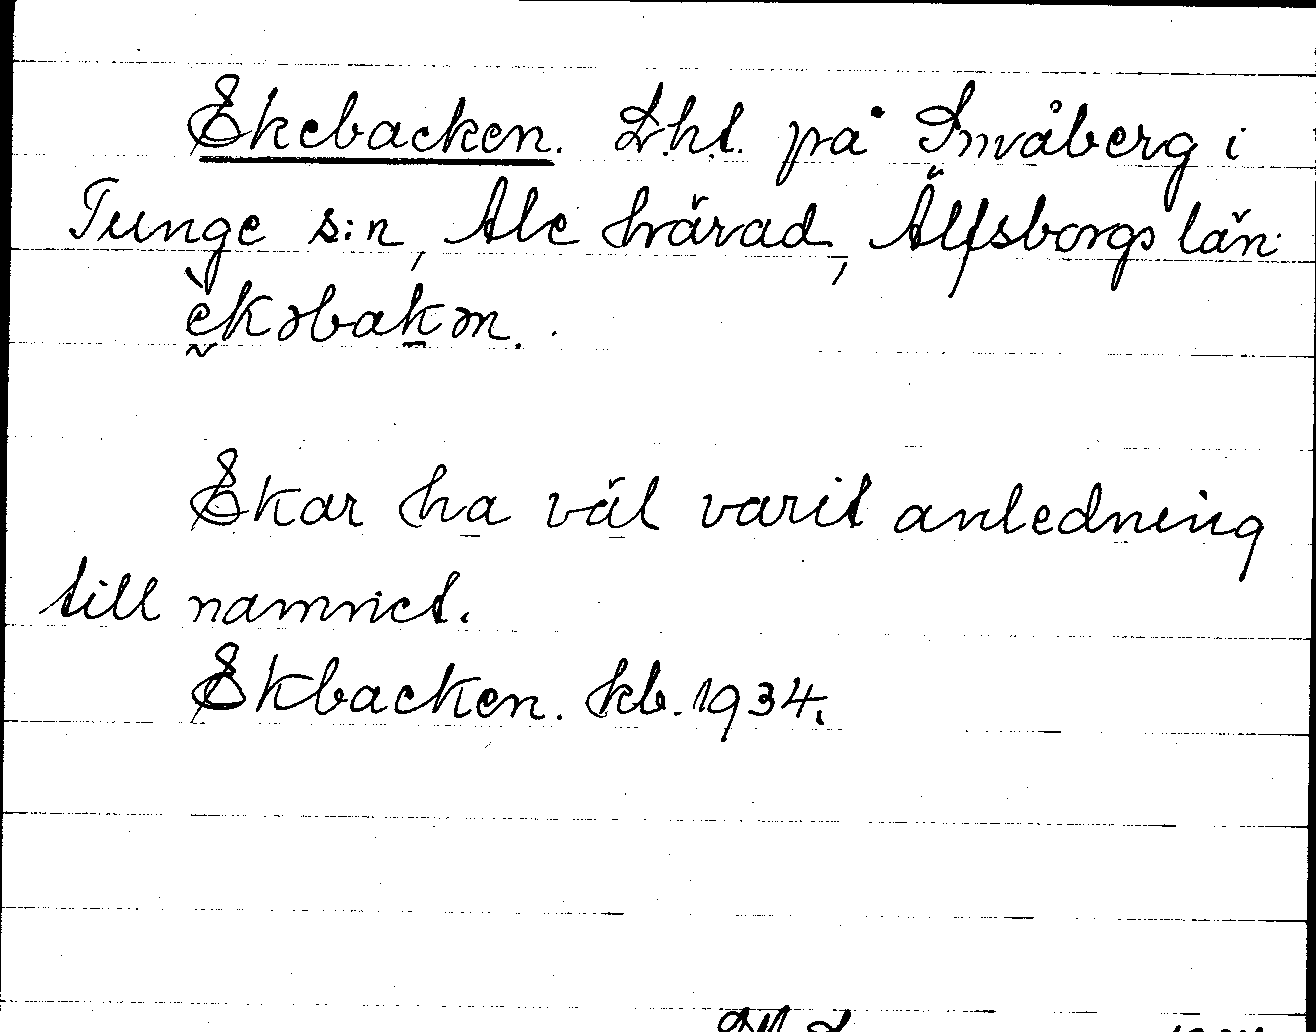 Ekebacken. Lht. på Småberg i
Tunge s:n, Ale härad, Älfsborgs län.
èkəbakən.
Ekar ha väl varit anledning
till namnet.
Ekbacken. kb. 1934.